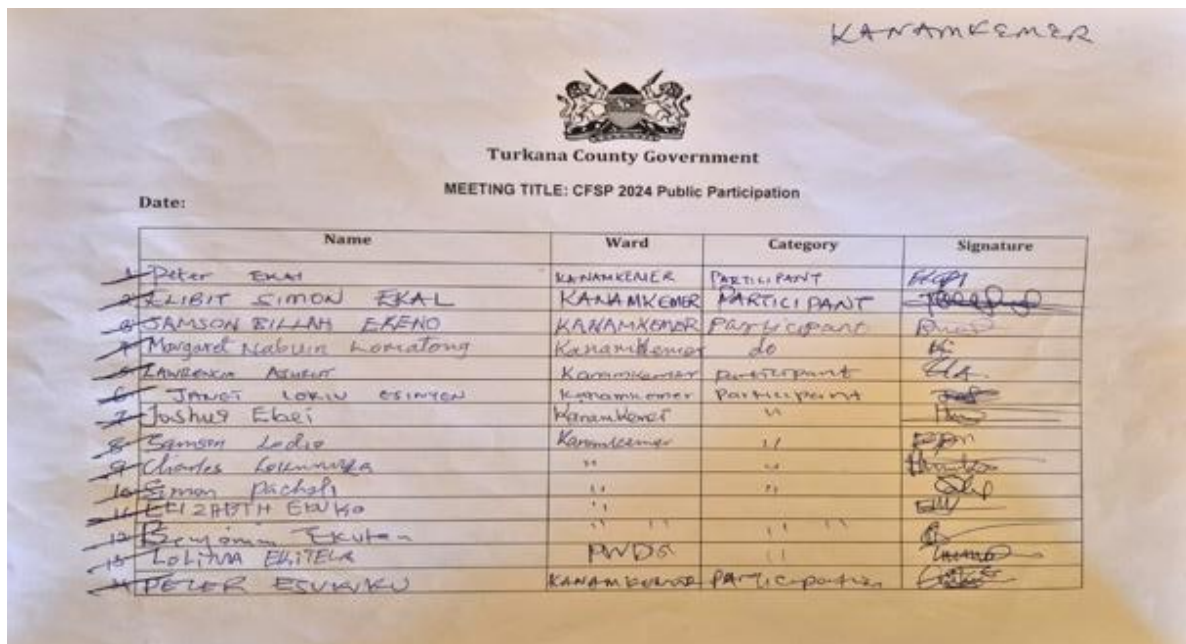 KANAMKEMER
Turkana County Government
MEETING TITLE: CFSP 2024 Public Participation
Date:
Name Ward Category Signature
1 Peter EKAI KANAMKEMER PARTICIPANT
2 ELIBIT SIMON EKAL KANAMKEMER PARTICIPANT
3 SAMSON BILLAH EKENO KANAMKEMER Participant
4 Margaret Nabuin Lomatong Kanamkemer do
5 LAWRENCIA Kanamkemer participant
6 JANET LOKIU ESINYEN Kanamkemer Participant
7 Joshua Ebei Kanamkemer "
8 Samson Lodio Kanamkemer "
9 Charles " "
10 Simon Pachodi " "
11 ELIZABETH EKUKO "
12 Benjamin Ekutan " " " "
13 LOLITMA EKITELA PWDS "
14 PETER ESUKUKU KANAMKEMER